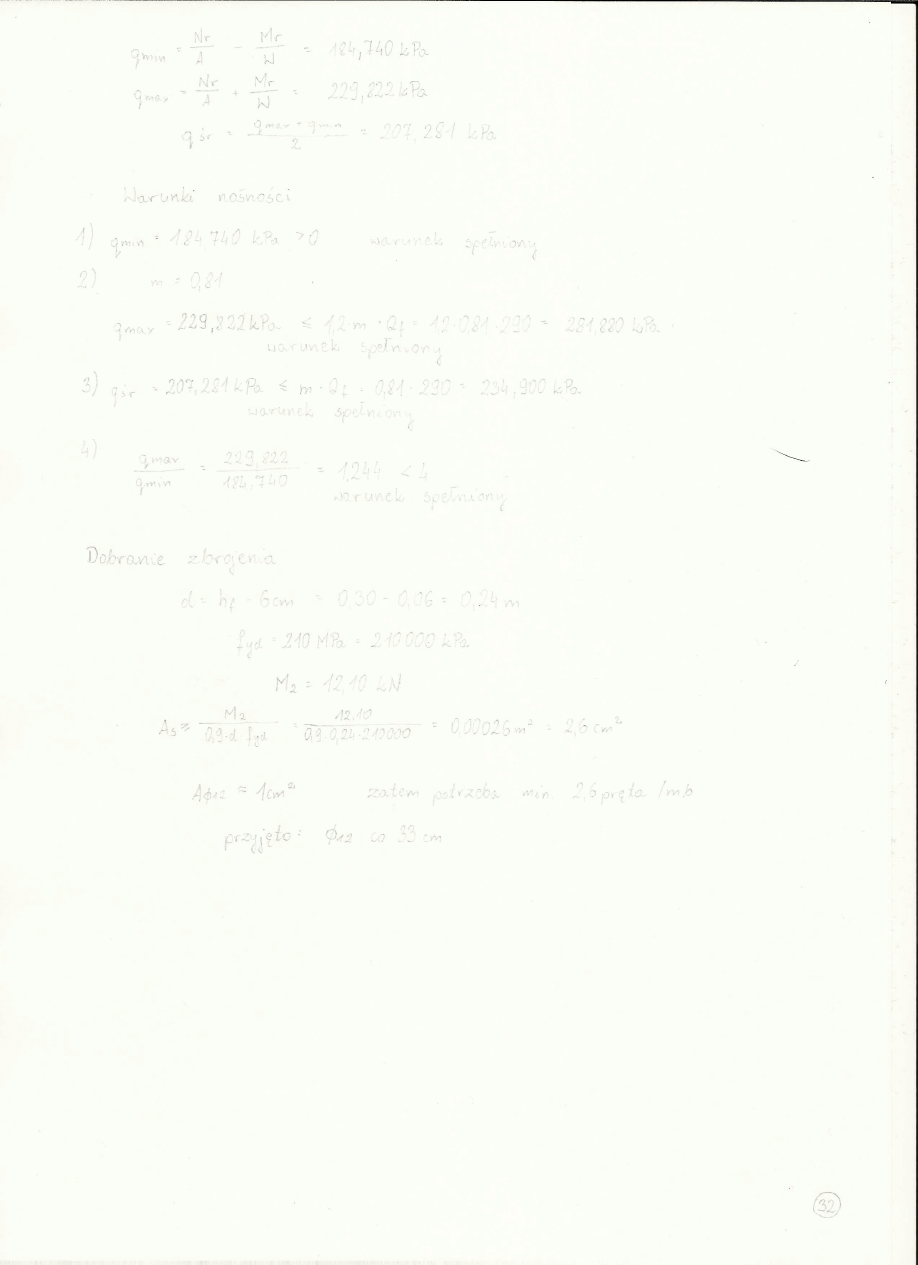 qmin = Nr/A - Mr/W = 184,740 kPa
qmax = Nr/A + Mr/W = 229,822 kPa
qśr = (qmax + qmin)/2 = 207,281 kPa
Warunki nośności
1) qmin = 184,740 kPa > 0 warunek spełniony
2) m = 0,81
qmax = 229,822 kPa ≤ 1,2·m·Qf = 1,2·0,81·290 = 281,880 kPa
warunek spełniony
3) qśr = 207,281 kPa ≤ m·Qf = 0,81·290 = 234,900 kPa
warunek spełniony
4) qmax/qmin = 229,822/184,740 = 1,244 < 4
warunek spełniony
Dobranie zbrojenia
d = hf - 6cm = 0,30 - 0,06 = 0,24 m
fyd = 210 MPa = 210000 kPa
M2 = 12,10 kN
As ≥ M2/(0,9·d·fyd) = 12,10/(0,9·0,24·210000) = 0,00026 m² = 2,6 cm²
Aϕ12 ≈ 1cm² zatem potrzeba min. 2,6 pręta /mb
przyjęto: ϕ12 co 33 cm
32